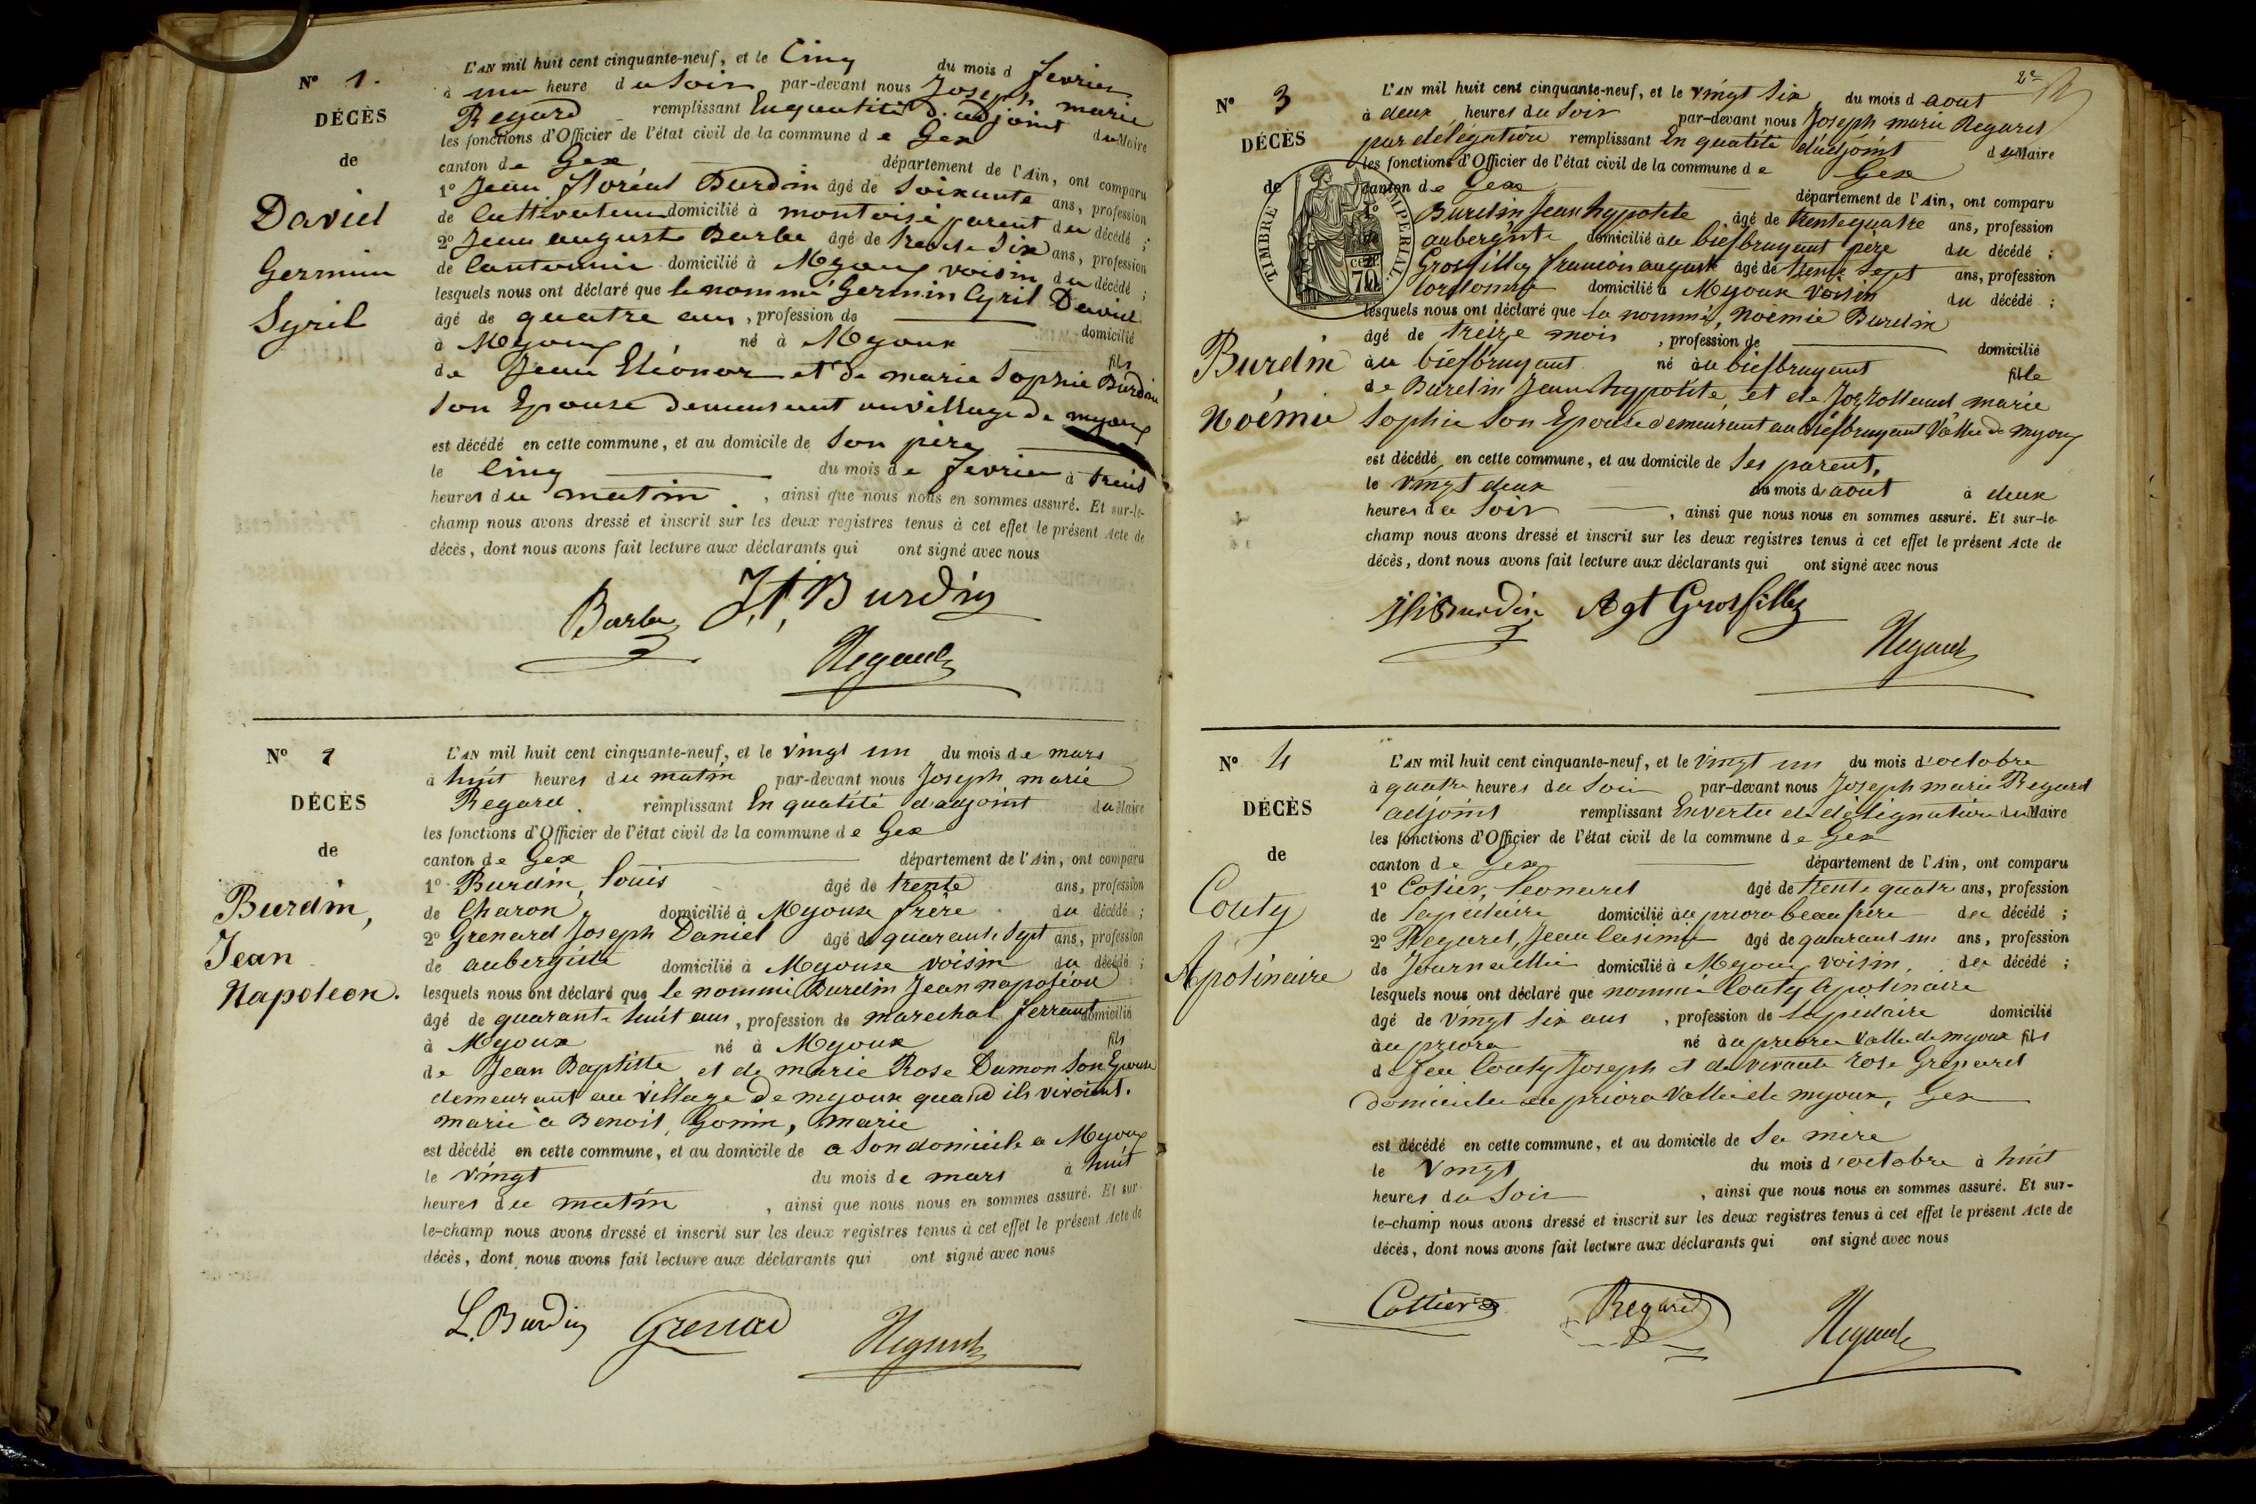 Nº 1.
DÉCÈS
de
David
Germin
Syril
L'AN mil huit cent cinquante-neuf, et le Cinq du mois d fevrier
à une heure du Soir par-devant nous Joseph marie
Regard remplissant Enqualité d'adjoint du Maire
les fonctions d'Officier de l'état civil de la commune de Gex
canton de Gex département de l'Ain, ont comparu
1º Jean floréal Burdin âgé de Soixante ans, profession
de Cultivateur domicilié à montoisé parent du décédé ;
2º Jean auguste Barbe âgé de trente Six ans, profession
de Cantonnié domicilié à Myoux voisin du décédé ;
lesquels nous ont déclaré que le nommé Germin Cyril David
âgé de quatre ans, profession de domicilié
à Myoux né à Myoux fils
de Jean Eléonor et de marie Sophie Burdin
Son Epouse demeurant au village de myoux
est décédé en cette commune, et au domicile de Son père
le Cinq du mois de fevrier à trois
heures du matin, ainsi que nous nous en sommes assuré. Et sur-le-
champ nous avons dressé et inscrit sur les deux registres tenus à cet effet le présent Acte de
décès, dont nous avons fait lecture aux déclarants qui ont signé avec nous
Barbe J.f. Burdin
Regard
Nº 2
DÉCÈS
de
Burdin,
Jean
Napoleon.
L'AN mil huit cent cinquante-neuf, et le vingt un du mois de mars
à huit heures du matin par-devant nous Joseph marie
Regard. remplissant En qualité d'adjoint du Maire
les fonctions d'Officier de l'état civil de la commune de Gex
canton de Gex département de l'Ain, ont comparu
1º Burdin, Louis âgé de trente ans, profession
de Charon domicilié à Myoux frère du décédé ;
2º Grenard Joseph Daniel âgé de quarante Sept ans, profession
de aubergiste domicilié à Myoux voisin du décédé ;
lesquels nous ont déclaré que le nommé Burdin Jean napoléon
âgé de quarante huit ans, profession de marechal ferrant domicilié
à Myoux né à Myoux fils
de Jean Baptiste et de marie Rose Dumon Son Epouse
demeurant au village de myoux quand ils vivoient.
marié à Benoit, Gonin, marie
est décédé en cette commune, et au domicile de a Son domicile a Myoux
le vingt du mois de mars à huit
heures du matin, ainsi que nous nous en sommes assuré. Et sur-
le-champ nous avons dressé et inscrit sur les deux registres tenus à cet effet le présent Acte de
décès, dont nous avons fait lecture aux déclarants qui ont signé avec nous
L. Burdin Grenard Regard
2e
Nº 3
DÉCÈS
de
Burdin
Noémie
TIMBRE IMPERIAL
70 CENT
L'AN mil huit cent cinquante-neuf, et le vingt Six du mois d aout
à deux heures du Soir par-devant nous Joseph marie Regard
par délégation remplissant En qualité d'adjoint du Maire
les fonctions d'Officier de l'état civil de la commune de Gex
canton de Gex département de l'Ain, ont comparu
1º Burdin Jean hypolite âgé de trentequatre ans, profession
de aubergiste domicilié au biefbruyant père du décédé ;
Grosfilley francois auguste âgé de trente Sept ans, profession
domicilié à Myoux Voisin du décédé ;
lesquels nous ont déclaré que la nommé, Noémie Burdin
âgé de treize mois, profession de domicilié
à au biefbruyant né à au biefbruyant fille
de Burdin Jean hypolite, et de marie
Sophie Son Epouse demeurant au biefbruyant Vallée de myoux
est décédé en cette commune, et au domicile de Ses parent.
le vingt deux du mois d aout à deux
heures du Soir, ainsi que nous nous en sommes assuré. Et sur-le-
champ nous avons dressé et inscrit sur les deux registres tenus à cet effet le présent Acte de
décès, dont nous avons fait lecture aux déclarants qui ont signé avec nous
JhBurdin Agt Grosfilley
Regard
Nº 4
DÉCÈS
de
Couty
Apolinaire
L'AN mil huit cent cinquante-neuf, et le vingt un du mois d'octobre
à quatre heures du Soir par-devant nous Joseph marie Regard
adjoint remplissant Envertu de désignation du Maire
les fonctions d'Officier de l'état civil de la commune de Gex
canton de Gex département de l'Ain, ont comparu
1º Cotier, Leonard âgé de trente quatre ans, profession
de Lapidaire domicilié au priora beaufrère du décédé ;
2º Regard, Jean Casimir âgé de quarant un ans, profession
de Journallié domicilié à Myoux voisin, du décédé ;
lesquels nous ont déclaré que nommé Couty Apolinaire
âgé de vingt Six ans, profession de Lapidaire domicilié
à au priora né à au priora Vallée de myoux fils
de feu Couty Joseph et de vivante Rose Grenard
domiciliée au priora Vallée de myoux, Gex
est décédé en cette commune, et au domicile de Sa mère
le Vingt du mois d'octobre à huit
heures du Soir, ainsi que nous nous en sommes assuré. Et sur-
le-champ nous avons dressé et inscrit sur les deux registres tenus à cet effet le présent Acte de
décès, dont nous avons fait lecture aux déclarants qui ont signé avec nous
Cottier Regard Regard